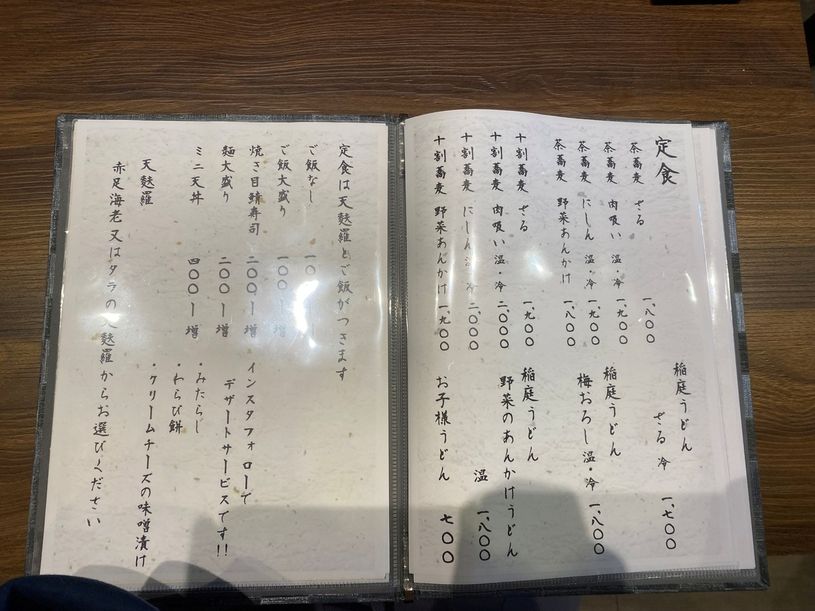 定食
茶蕎麦 ざる 一、八〇〇
茶蕎麦 肉吸い 温・冷 一、九〇〇
茶蕎麦 にしん 温・冷 一、九〇〇
茶蕎麦 野菜あんかけ 一、八〇〇
十割蕎麦 ざる 一、九〇〇
十割蕎麦 肉吸い 温・冷 二、〇〇〇
十割蕎麦 にしん 温・冷 二、〇〇〇
十割蕎麦 野菜あんかけ 一、九〇〇
稲庭うどん
ざる 冷 一、七〇〇
稲庭うどん
梅おろし 温・冷 一、八〇〇
稲庭うどん
野菜のあんかけうどん
温 一、八〇〇
お子様うどん 七〇〇
定食は天麩羅とご飯がつきます
ご飯なし
ご飯大盛り 一〇〇ー増
焼き目鯖寿司 二〇〇ー増
麺大盛り 二〇〇ー増
ミニ天丼 四〇〇ー増
インスタフォローで
デザートサービスです!!
・みたらし
・わらび餅
・クリームチーズの味噌漬け
天麩羅
赤足海老又はタラの天麩羅からお選びください